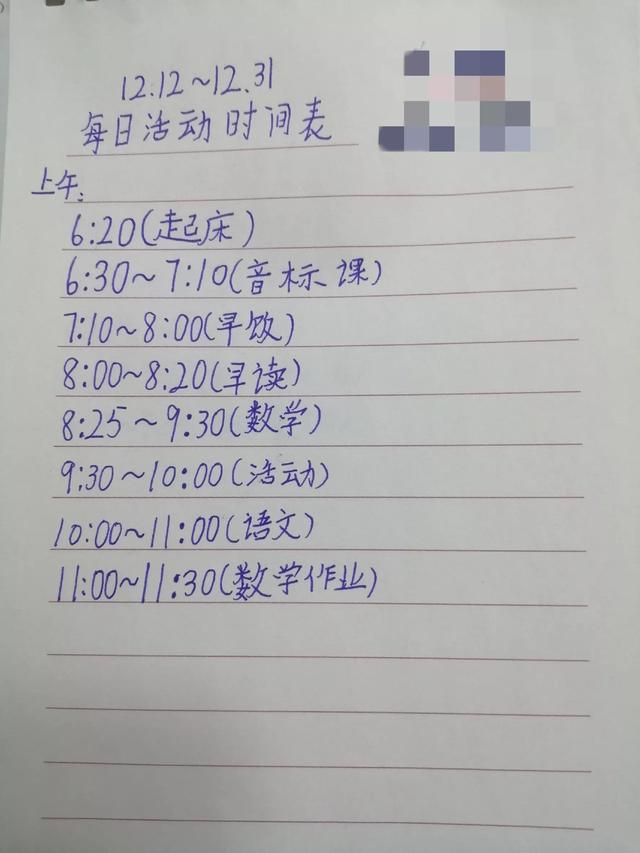 12.12~12.31
每日活动时间表
上午:
6:20(起床)
6:30~7:10(音标课)
7:10~8:00(早饭)
8:00~8:20(早读)
8:25~9:30(数学)
9:30~10:00(活动)
10:00~11:00(语文)
11:00~11:30(数学作业)